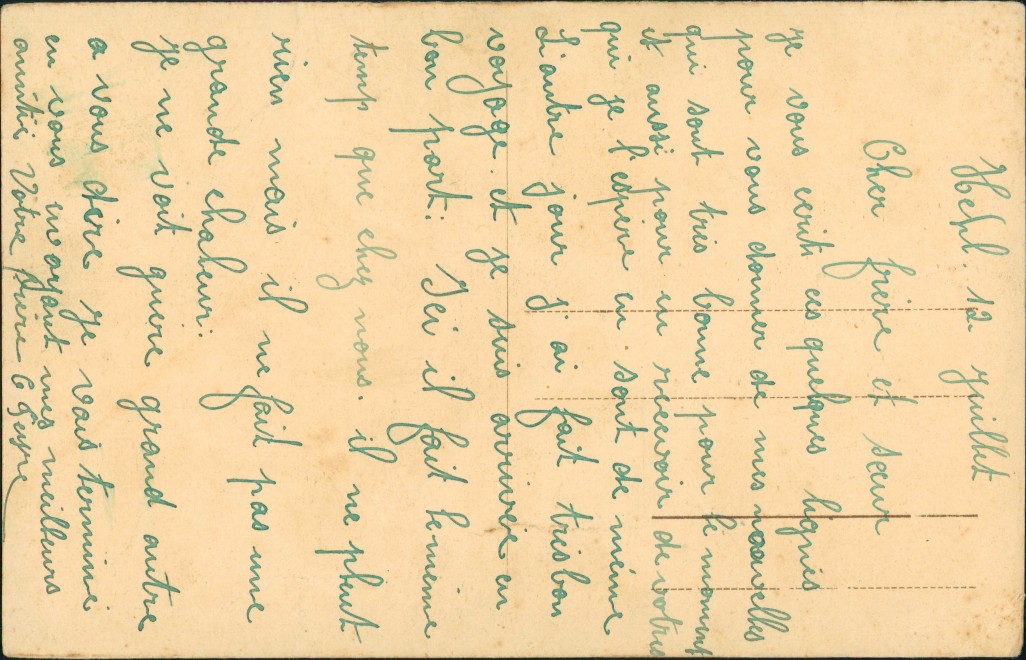 Heph. 12 juillet
Cher frère et sœur
je vous ecrit ces quelques lignes
pour vous donner de mes nouvelles
qui sont tris bonne pour le moment
et aussi pour en recevoir de votres
qui je l'espere en sont de même
L'autre jour j. ai fait trisbon
voyage et je suis arrivée en
bon port: Ici il fait le meme
temp que chez nous. il ne pleut
rien mais il ne fait pas une
grande chaleur:
je ne voit guere grand autre
a vous dire je vais terminé
en vous envoyant mes meilleurs
amitié Votre frère C